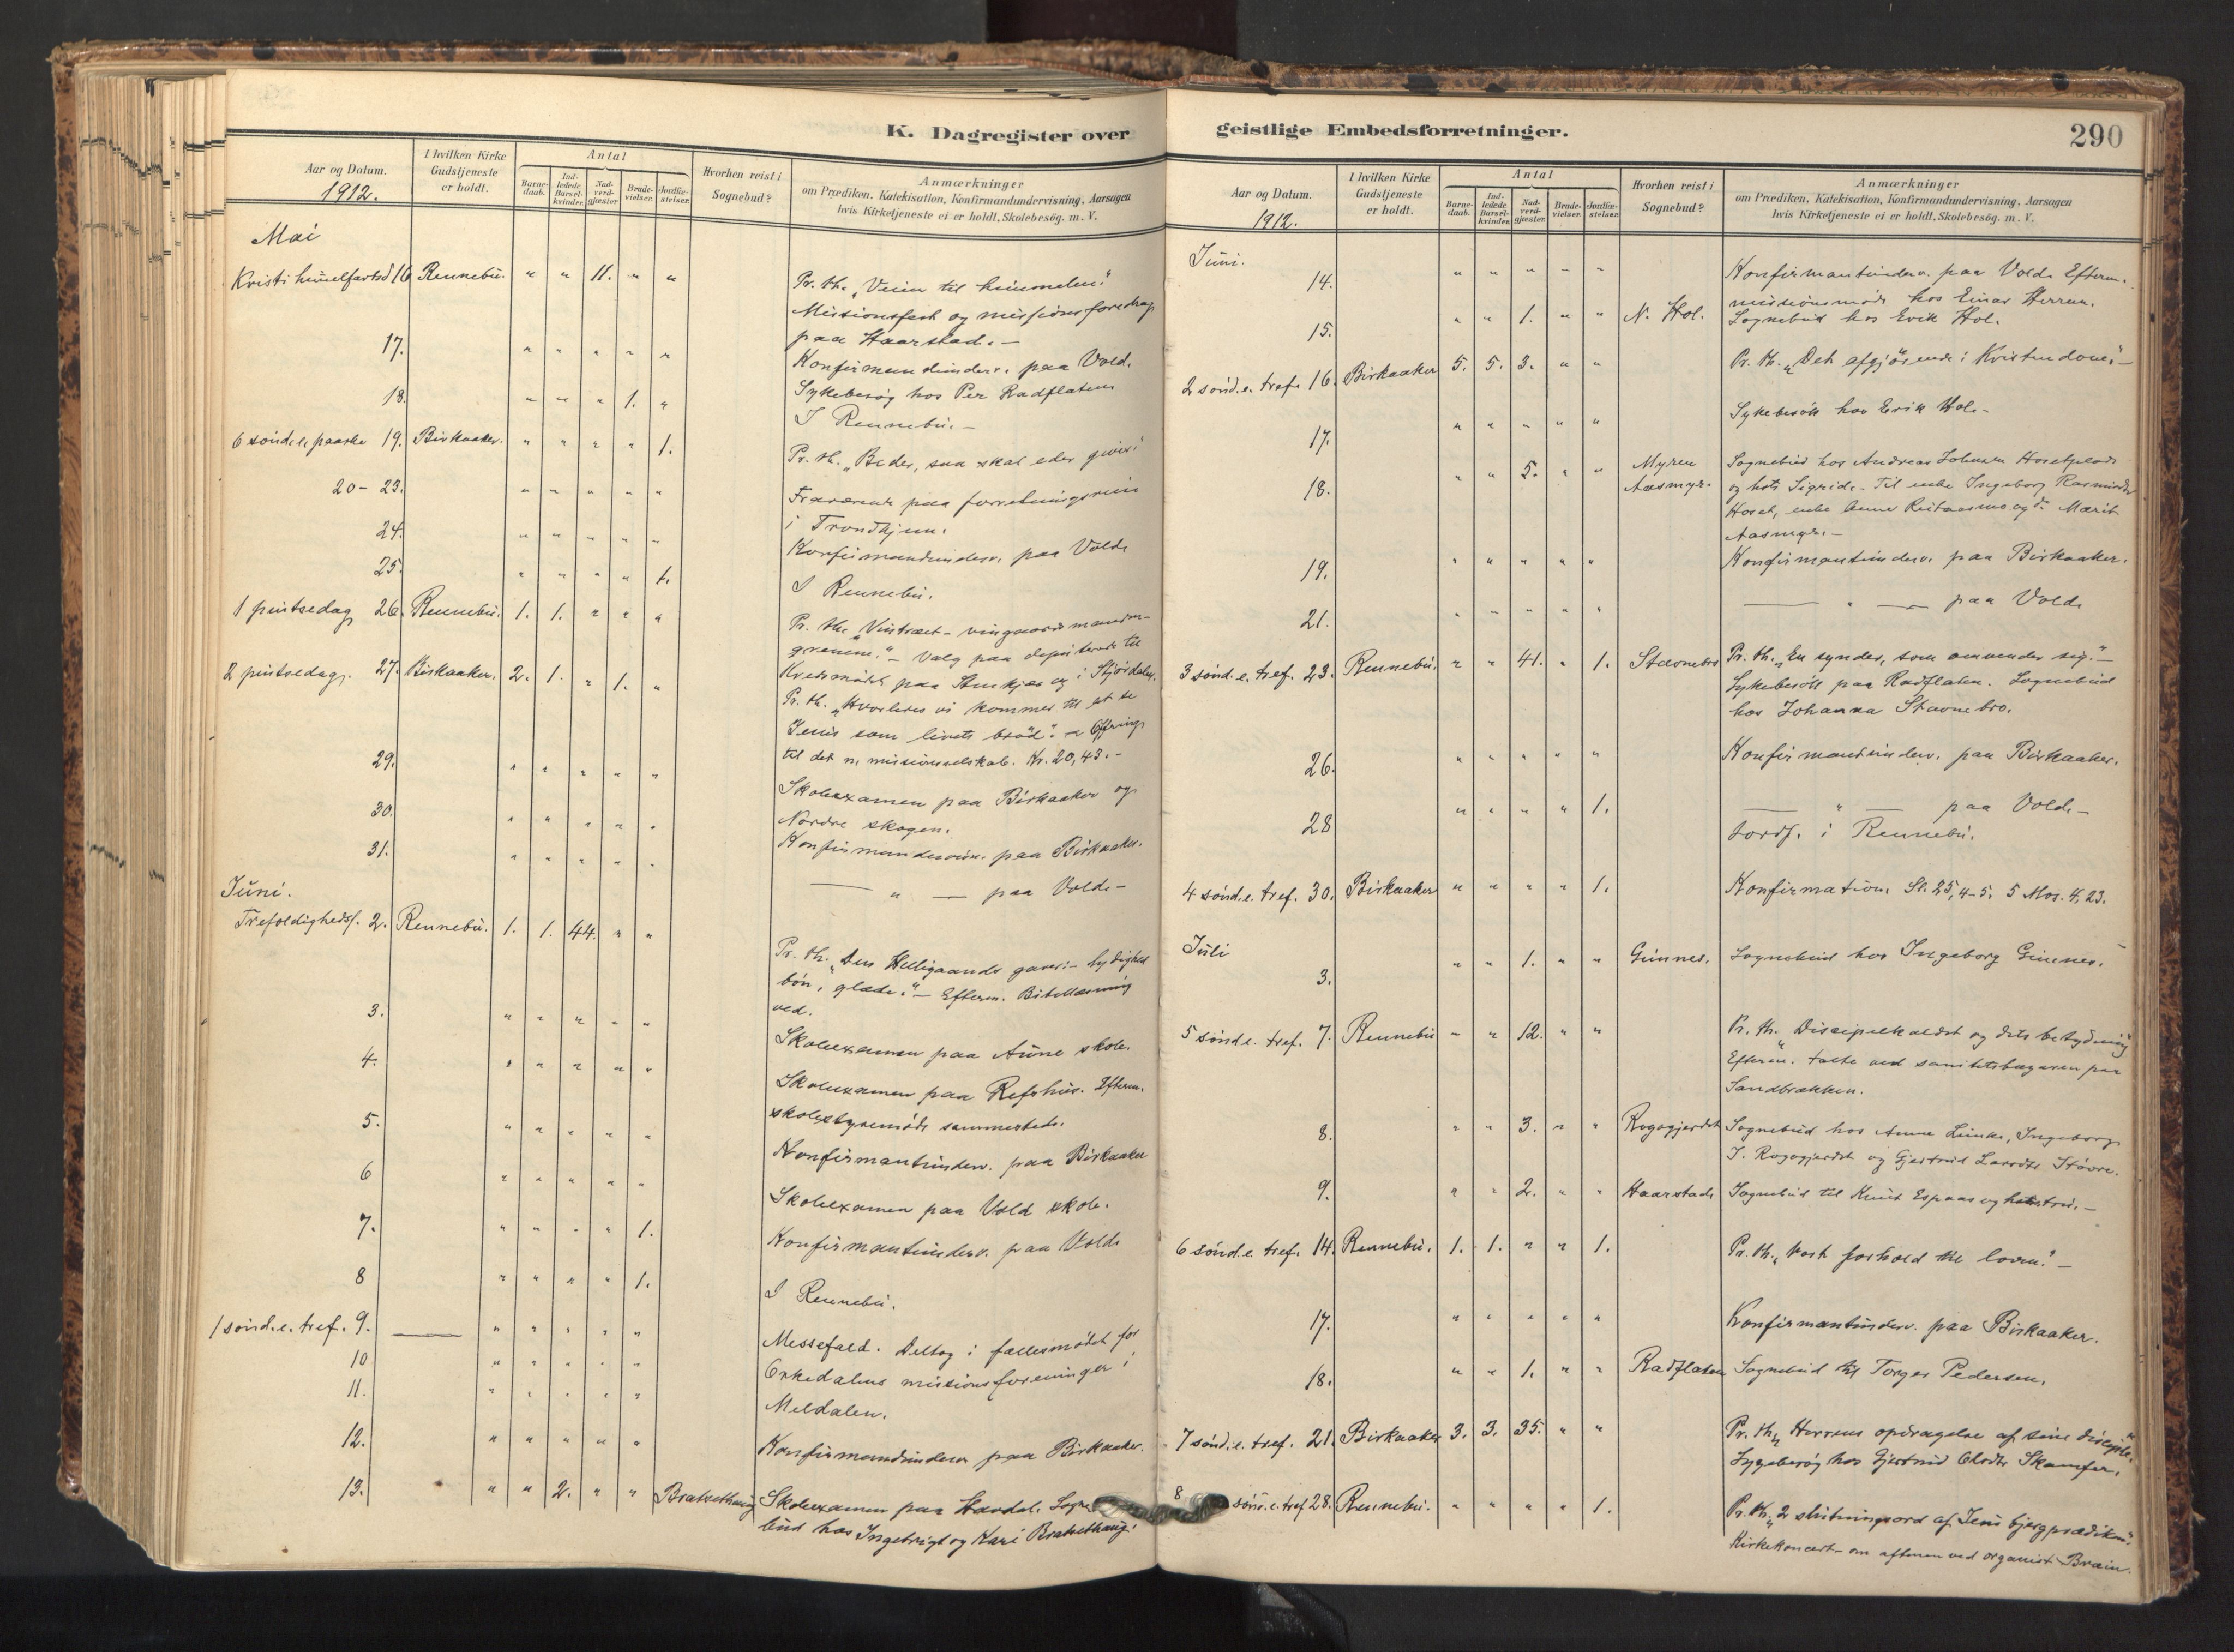 K. Dagregister over
Aar og Datum.
1912.
I hvilken Kirke
Gudstjeneste
er holdt.
Antal
Barne-
daab.
Ind-
ledede
Barsel-
kvinder.
Nad-
verd-
gjester.
Brude-
vielser.
Jordfæ-
stelser.
Hvorhen reist i
Sognebud?
Anmærkninger
om Prædiken, Katekisation, Konfirmandundervisning, Aarsagen
hvis Kirketjeneste ei er holdt, Skolebesøg. m. V.
Mai
Kristi himmelfartsd 16 Rennebu. " " 11. " " Pr. th. "Veien til himmelen."
Missionsfest og missionsforedrag
paa Haarstad. -
17. " " " " " Konfirmandunderv. paa Vold.
Sykebesøg hos Per Radflaten
18. " " " 1. " I Rennebu. -
6 sønd. e. paaske 19. Birkaaker. " " " " 1. Pr. th. "Beder, saa skal eder gives"
20 - 23. " " " " " Fraværende paa forretningsreise
i Trondhjem.
24. " " " " " Konfirmandunderv. paa Vold.
25. " " " " 1. I Rennebu.
1 pintsedag 26. Rennebu. 1. 1. " " " Pr. th. "Vintræet - vingaardsmanden -
grenene." - Valg paa deputerede til
Kredsmødet paa Stenkjær og i Stjørdalen.
2 pintsedag. 27. Birkaaker. 2. 1. " 1. " Pr. th. "Hvorledes vi kommer til at se
Jesus som livets brød". - Offring
til det n. missionsselskab. Kr. 20,43. -
29. " " " " " Skoleexamen paa Birkaaker og
Nordre skogen.
30. " " " " " Konfirmandunderv. paa Birkaaker.
31. " " " " " — " — paa Vold. -
Juni.
Trefoldighedsf. 2. Rennebu. 1. 1. 44. " " Pr. th. "Den Helligaands gaver: - lydighed
bøn, glæde." - Efterm. Bibellæsning
ved.
3. " " " " " Skoleexamen paa Aune skole.
4. " " " " " Skoleexamen paa Refshus. Efterm.
skolestyremøde sammesteds.
5. " " " " " Konfirmantunderv. paa Birkaaker
6 " " " " " Skoleexamen paa Vold skole.
7. " " " " 1. Konfirmantunderv. paa Vold.
8 " " " " 1. I Rennebu.
1 sønd. e. tref. 9. — " " " " " Messefald. Deltog i fællesmødet for
10 " " " " " Orkedalens missionsforeninger i
11. " " " " " Meldalen.
12. " " " " " Konfirmandunderv paa Birkaaker.
13. " " 2. " " Bratsethaug Skoleexamen paa Havdal. Sogne-
bud hos Ingebrigt og Kari Bratsethaug.
geistlige Embedsforretninger.
290
Aar og Datum.
1912.
I hvilken Kirke
Gudstjeneste
er holdt.
Antal
Barne-
daab.
Ind-
ledede
Barsel-
kvinder.
Nad-
verd-
gjester.
Brude-
vielser.
Jordfæ-
stelser.
Hvorhen reist i
Sognebud?
Anmærkninger
om Prædiken, Katekisation, Konfirmandundervisning, Aarsagen
hvis Kirketjeneste ei er holdt, Skolebesøg. m. V.
Juni.
14. " " " " " Konfirmantunderv. paa Vold. Efterm.
missionsmøde hos Einar Herrem.
15. " " 1. " " N. Hol. Sognebud hos Erik Hol.
2 sønd. e. tref. 16. Birkaaker 5. 5. 3. " " Pr. th. "Det afgjørende i Kristendom" -
17. " " " " " Sykebesøk hos Erik Hol. -
18. " " 5. " " Myren
Aasmyr. Sognebud hos Andreas Johnsen Hosetplads
og hst. Sigrid. - Til enke Ingeborg Rasmusdtr
Hoset, enke Anne Reitaasmo og do Marit
Aasmyr. -
19. " " " " " Konfirmantunderv. paa Birkaaker.
21. " " " " " — " — paa Vold.
3 sønd. e. tref. 23. Rennebu. " " 41. " 1. Stavnebro Pr. th. "En synder, som omvender sig." -
Sykebesøk paa Radflaten. Sognebud
hos Johanna Stavnebro.
26. " " " " " Konfirmandunderv. paa Birkaaker.
28 " " " " 1. — " — paa Vold. -
Jordf. i Rennebu.
4 sønd. e. tref. 30. Birkaaker " " " " 1. Konfirmation. Sl. 25, 4-5. 5 Mos. 4, 23.
Juli
3. " " 1. " " Gunnes. Sognebud hos Ingeborg Gunnes. -
5 sønd e. tref. 7. Rennebu " " 12. " " Pr. th. "Discipelkaldet og dets betydning"
Efterm. talte ved sanitetsbazaren paa
Sandbrækken.
8. " " 3. " " Rogogjerdet Sognebud hos Anne Linke, Ingeborg
I. Rogogjerdet og Gjertrud Larsdtr Stavne.
9. " " 2. " " Haarstad. Sognebud til Knut Espaas og hustru. -
6 sønd. e. tref. 14. Rennebu. 1. 1. " " 1. Pr. th. "Vort forhold til loven." -
17. " " " " " Konfirmantunderv. paa Birkaaker.
18. " " 1. " " Radflaten Sognebud til Torger Pedersen.
7 sønd. e. tref. 21. Birkaaker 3. 3. 35. " " Pr. th. "Herrens opdragelse af sine disciple."
Sygebesøg hos Gjertrud Olsdtr Skamfer.
8 sønd. e. tref 28. Rennebu. " " " " 1. Pr. th. "2 slutningsord af Jesu bjergprædiken."
Kirkekoncert om aftenen ved organist Bræin.